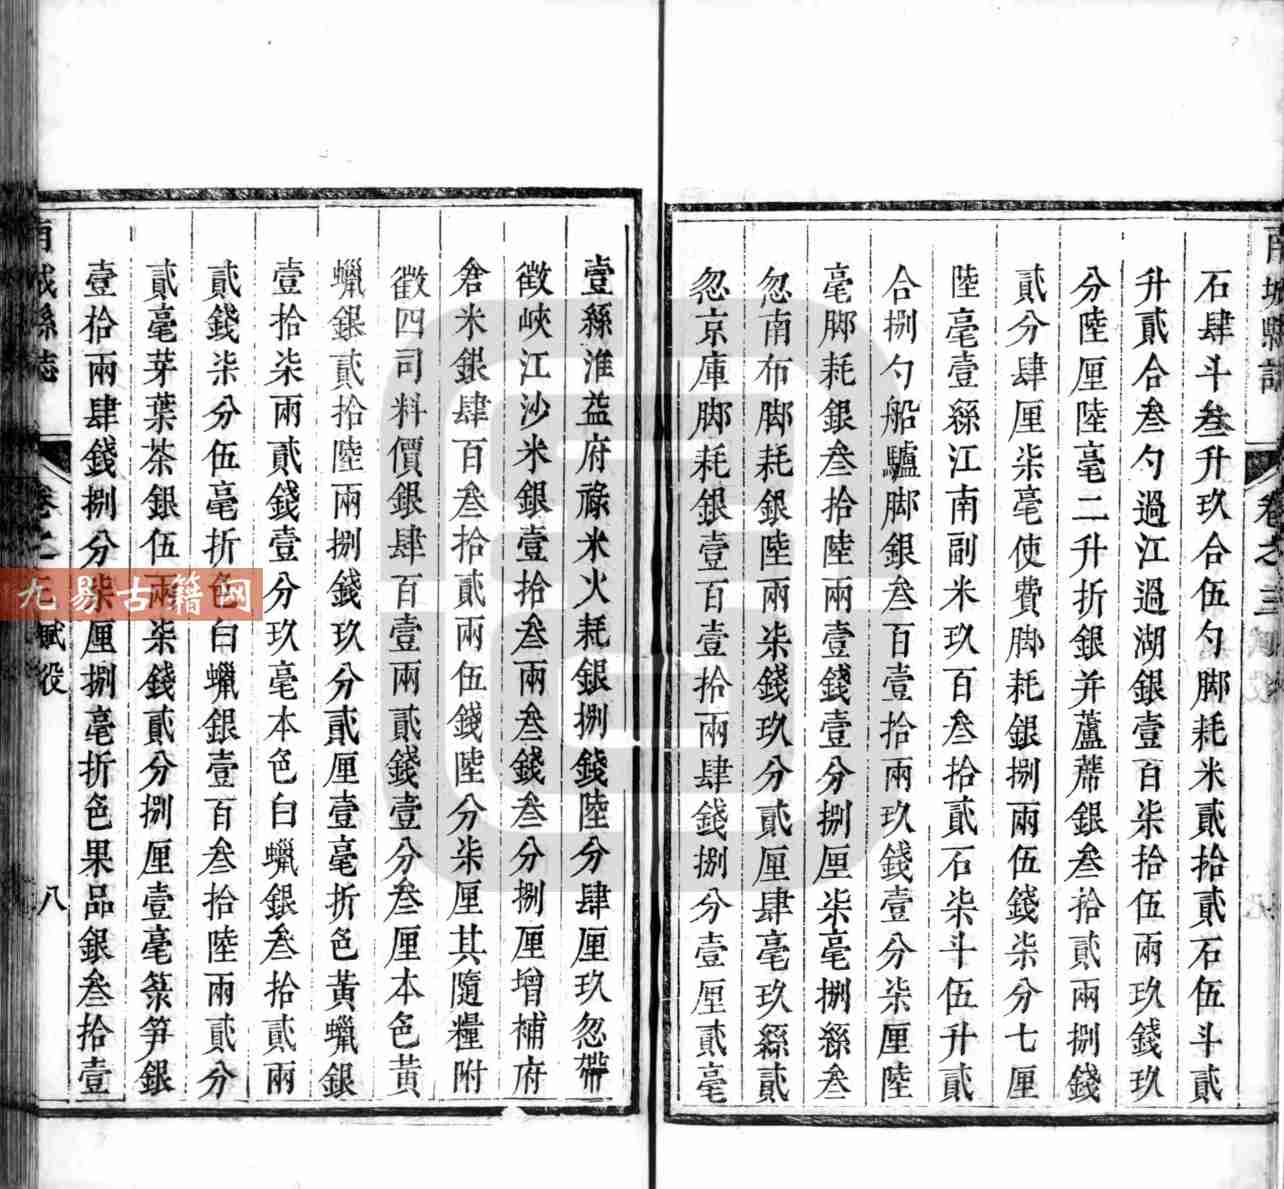 南城縣誌
卷之三
石肆斗叁升玖合伍勺脚耗米貳拾貳石伍斗貳
升貳合叁勺過江過湖銀壹百柒拾伍兩玖錢玖
分陸厘陸毫二升折銀并蘆蓆銀叁拾貳兩捌錢
貳分肆厘柒毫使費脚耗銀捌兩伍錢柒分七厘
陸毫壹絲江南副米玖百叁拾貳石柒斗伍升貳
合捌勺船驢脚銀叁百壹拾兩玖錢壹分柒厘陸
毫脚耗銀叁拾陸兩壹錢壹分捌厘柒毫捌絲叁
忽南布脚耗銀陸兩柒錢玖分貳厘肆毫玖絲貳
忽京庫脚耗銀壹百壹拾兩肆錢捌分壹厘貳毫
壹絲淮益府祿米火耗銀捌錢陸分肆厘玖忽帶
徵峽江沙米銀壹拾叁兩叁錢叁分捌厘增補府
倉米銀肆百叁拾貳兩伍錢陸分柒厘其隨糧附
徵四司料價銀肆百壹兩貳錢壹分叁厘本色黃
蠟銀貳拾陸兩捌錢玖分貳厘壹毫折色黃蠟銀
壹拾柒兩貳錢壹分玖毫本色白蠟銀叁拾貳兩
貳錢柒分伍毫折色白蠟銀壹百叁拾陸兩貳分
貳毫芽葉茶銀伍兩柒錢貳分捌厘壹毫菉笋銀
壹拾兩肆錢捌分柒厘捌毫折色果品銀叁拾壹
南城縣誌
卷之三 賦役
八
九易古籍网